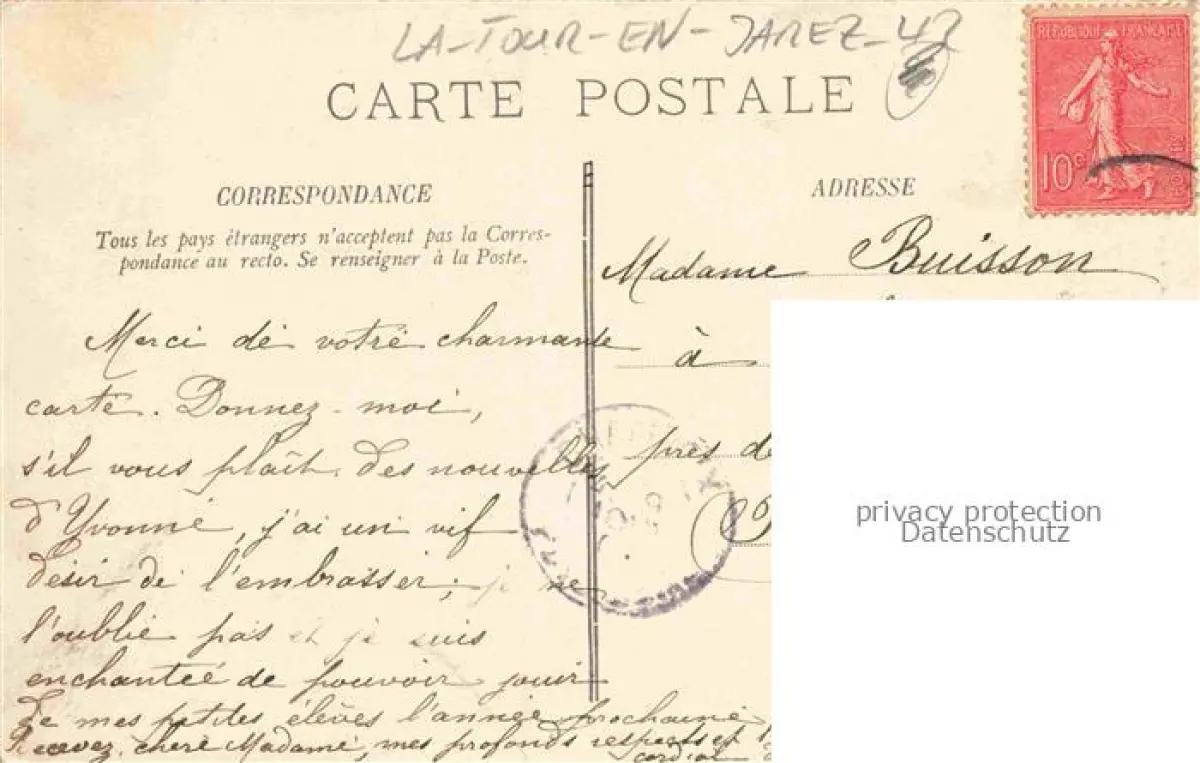 LA-TOUR-EN-JAREZ-42
CARTE POSTALE
RÉPUBLIQUE FRANÇAISE
10c
CORRESPONDANCE
Tous les pays étrangers n'acceptent pas la Corres-
pondance au recto. Se renseigner à la Poste.
Merci de votre charmante
carte. Donnez-moi,
s'il vous plaît, des nouvelles
d'Yvonne, j'ai un vif
désir de l'embrasser; je ne
l'oublie pas et je suis
enchantée de pouvoir jouir
de mes petites élèves l'année prochaine
Recevez, chère Madame, mes profonds respects et
ADRESSE
Madame Buisson
à
près de
privacy protection
Datenschutz